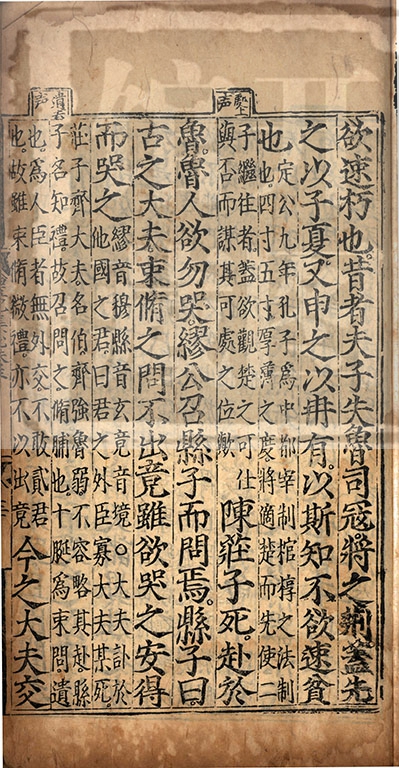 欲速朽也。昔者夫子失魯司寇。將之荆。蓋先
之以子夏。又申之以冉有。以斯知不欲速貧
也
定公九年孔子爲中都宰制棺椁之法制
也四寸五寸厚薄之度將適楚而先使二
子繼往者蓋欲觀楚之可仕
與否而謀其可處之位歟
陳莊子死。赴於
魯。魯人欲勿哭。繆公召縣子而問焉。縣子曰。
古之大夫。束脩之問不出竟。雖欲哭之。安得
而哭之
繆音穆縣音玄竟音境○大夫訃於
他國之君曰君之外臣寡大夫某死
莊子齊大夫名伯齊強魯弱不容略其赴縣
子名知禮故召問之脩脯也十脡爲束問遺
也爲人臣者無外交不敢貳君
也故雖束脩微禮亦不以出竟
今之大夫交
與上声
遺去声